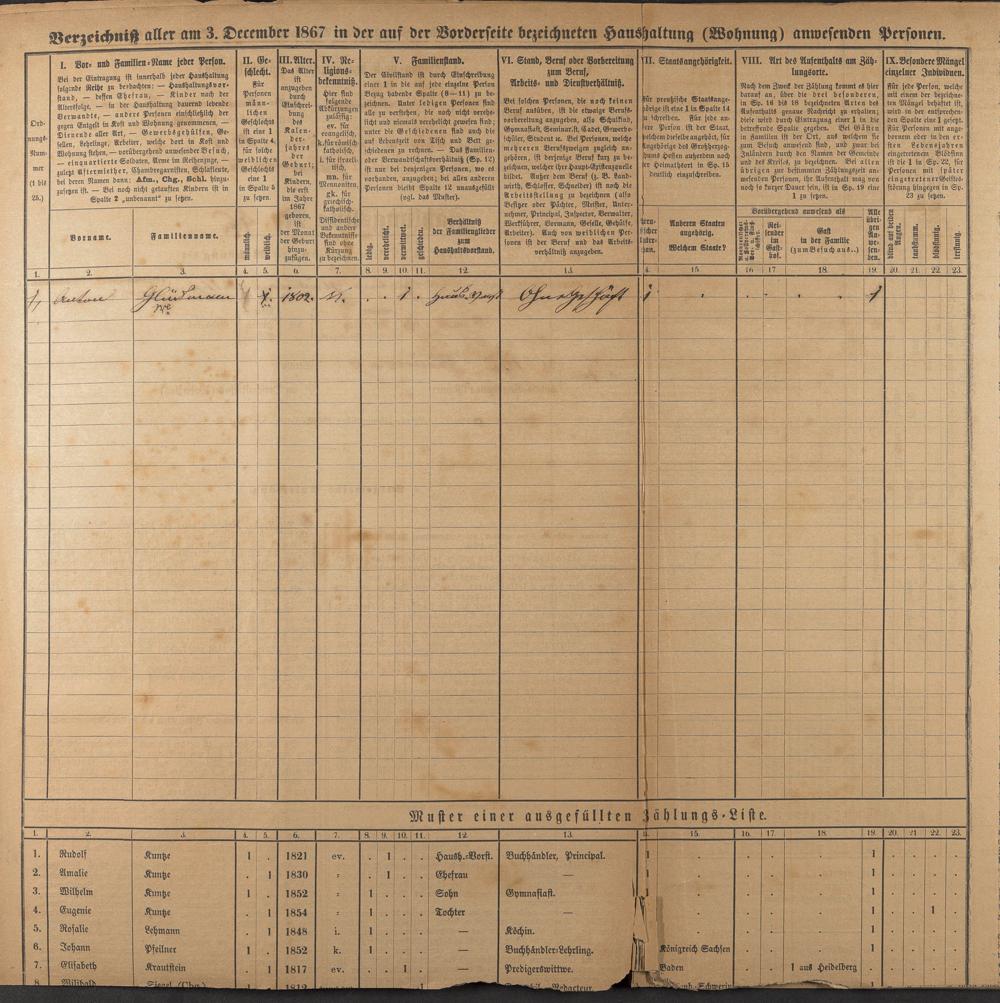 Verzeichniß aller am 3. December 1867 in der auf der Vorderseite bezeichneten Haushaltung (Wohnung) anwesenden Personen.
Ord-
nungs-
Num-
mer
(1 bis
25.)
I. Vor- und Familien-Name jeder Person.
Bei der Eintragung ist innerhalb jeder Haushaltung
folgende Reihe zu beobachten: — Haushaltungsvor-
stand, — dessen Ehefrau, — Kinder nach der
Altersfolge, — in der Haushaltung dauernd lebende
Verwandte, — andere Personen einschließlich der
gegen Entgelt in Kost und Wohnung genommenen, —
Dienende aller Art, — Gewerbsgehülfen, Ge-
sellen, Lehrlinge, Arbeiter, welche dort in Kost und
Wohnung stehen, — vorübergehend anwesender Besuch,
— einquartierte Soldaten, Arme im Reihenzuge, —
zuletzt Aftermiether, Chambregarnisten, Schlafleute,
bei deren Namen dann: Afm., Chg., Schl. hinzu-
zusetzen ist. — Bei noch nicht getauften Kindern ist in
Spalte 2 „unbenannt“ zu setzen.
Vorname.
Familienname.
II. Ge-
schlecht.
Für
Personen
männ-
lichen
Geschlechts
ist eine 1
in Spalte 4,
für solche
weiblichen
Geschlechts
eine 1
in Spalte 5
zu setzen.
männlich.
weiblich.
III. Alter.
Das Alter
ist
anzugeben
durch
Einschrei-
bung
des
Kalen-
der-
jahres
der
Geburt;
bei
Kindern,
die erst
im Jahre
1867
geboren,
ist
der Monat
der Geburt
hinzu-
zufügen.
IV. Re-
ligions-
bekenntniß.
Hier sind
folgende
Abkürzungen
zulässig:
ev. für
evangelisch,
k. für römisch
katholisch,
i. für israeli-
tisch,
mn. für
Mennoniten,
gk. für
griechisch-
katholisch.
Dissidentische
und andere
Bekenntnisse
sind ohne
Kürzung
zu bezeichnen.
V. Familienstand.
Der Civilstand ist durch Einschreibung
einer 1 in die auf jede einzelne Person
Bezug habende Spalte (8—11) zu be-
zeichnen. Unter ledigen Personen sind
alle zu verstehen, die noch nicht verehe-
licht und niemals verehelicht gewesen sind
unter die Geschiedenen sind auch die
auf Lebenszeit von Tisch und Bett ge-
schiedenen zu rechnen. — Das Familien-
oder Verwandtschaftsverhältniß (Sp. 12)
ist nur bei denjenigen Personen, wo es
vorhanden, anzugeben; bei allen anderen
Personen bleibt Spalte 12 unausgefüllt
(vgl. das Muster).
ledig.
verehelicht.
verwittwet.
geschieden.
Verhältniß
der Familienglieder
zum
Haushaltsvorstand.
VI. Stand, Beruf oder Vorbereitung
zum Beruf,
Arbeits- und Dienstverhältniß.
Bei solchen Personen, die noch keinen
Beruf ausüben, ist die etwaige Berufs-
vorbereitung anzugeben, also Schulkind,
Gymnasiast, Seminarist, Cadet, Gewerbe-
schüler, Student u. Bei Personen, welche
mehreren Berufszweigen zugleich an-
gehören, ist derjenige Beruf kurz zu be-
zeichnen, welcher ihre Haupt-Existenzquelle
bildet. Außer dem Beruf (z. B. Land-
wirth, Schlosser, Schneider) ist noch die
Arbeitsstellung zu bezeichnen (also
Besitzer oder Pächter, Meister, Unter-
nehmer, Principal, Inspector, Verwalter,
Werkführer, Vormann, Geselle, Gehülfe
Arbeiter). Auch von weiblichen Per-
sonen ist der Beruf und das Arbeits-
verhältniß anzugeben.
VII. Staatsangehörigkeit.
Anderen Staaten
angehörig.
Welchem Staate?
VIII. Art des Aufenthalts am Zäh-
lungsorte.
Nach dem Zweck der Zählung kommt es hier
darauf an, über die drei besonderen,
in Sp. 16 bis 18 bezeichneten Arten des
Aufenthalts genaue Nachricht zu erhalten;
diese wird durch Eintragung einer 1 in die
betreffende Spalte gegeben. Bei Gästen
in Familien ist der Ort, aus welchem sie
zum Besuch anwesend sind, und zwar bei
Inländern durch den Namen der Gemeinde
und des Kreises, zu bezeichnen. Bei allen
übrigen zur bestimmten Zählungszeit an-
wesenden Personen, ihr Aufenthalt mag von
noch so kurzer Dauer sein, ist in Sp. 19 eine
1 zu setzen.
Vorübergehend anwesend als
Rei-
sender
im
Gast-
hof.
Gast
in der Familie
(zum Besuch aus..)
Alle
übri-
gen
An-
we-
sen-
den.
IX. Besondere Mängel
einzelner Individuen.
Für jede Person, welche
mit einem der bezeichne-
ten Mängel behaftet ist,
wird in der entsprechen-
den Spalte eine 1 gesetzt.
Für Personen mit ange-
bornem oder in den er-
sten Lebensjahren
eingetretenem Blödsinn
ist die 1 in Sp. 22, für
Personen mit später
eingetretener Geistes-
störung hingegen in Sp.
23 zu setzen.
blind auf beiden
Augen.
taubstumm.
blödsinnig.
irrsinnig.
1. 2. 3. 4. 5. 6. 7. 8. 9. 10. 11. 12. 13. 4. 15. 16 17 18. 19. 20. 21. 22. 23.
1, Anton 1802. . . 1 . Ohne Geschäft 1 . . . . 1
Muster einer ausgefüllten Zählungs-Liste.
1. 2. 3. 4. 5. 6. 7. 8. 9. 10. 11. 12. 13. 15. 16. 17. 18. 19. 20. 21. 22. 23.
1. Rudolf Kuntze 1 . 1821 ev. . 1 . . Haush.-Vorst. Buchhändler, Principal. 1 . . . . 1 . . . .
2. Amalie Kuntze . 1 1830 " . 1 . . Ehefrau — 1 . . . . 1 . . . .
3. Wilhelm Kuntze 1 . 1852 " 1 . . . Sohn Gymnasiast. 1 . . . . 1 . . . .
4. Eugenie Kuntze . 1 1854 " 1 . . . Tochter — . . . . 1 . . 1 .
5. Rosalie Lehmann . 1 1848 i. 1 . . . — Köchin. . . . . 1 . . . .
6. Johann Pfeilner 1 . 1852 k. 1 . . . — Buchhändler-Lehrling. Königreich Sachsen . . . 1 . . . .
7. Elisabeth Krautstein . 1 1817 ev. . . 1 . — Predigerswittwe. Baden . . 1 aus Heidelberg . . . . .
8. Willibald